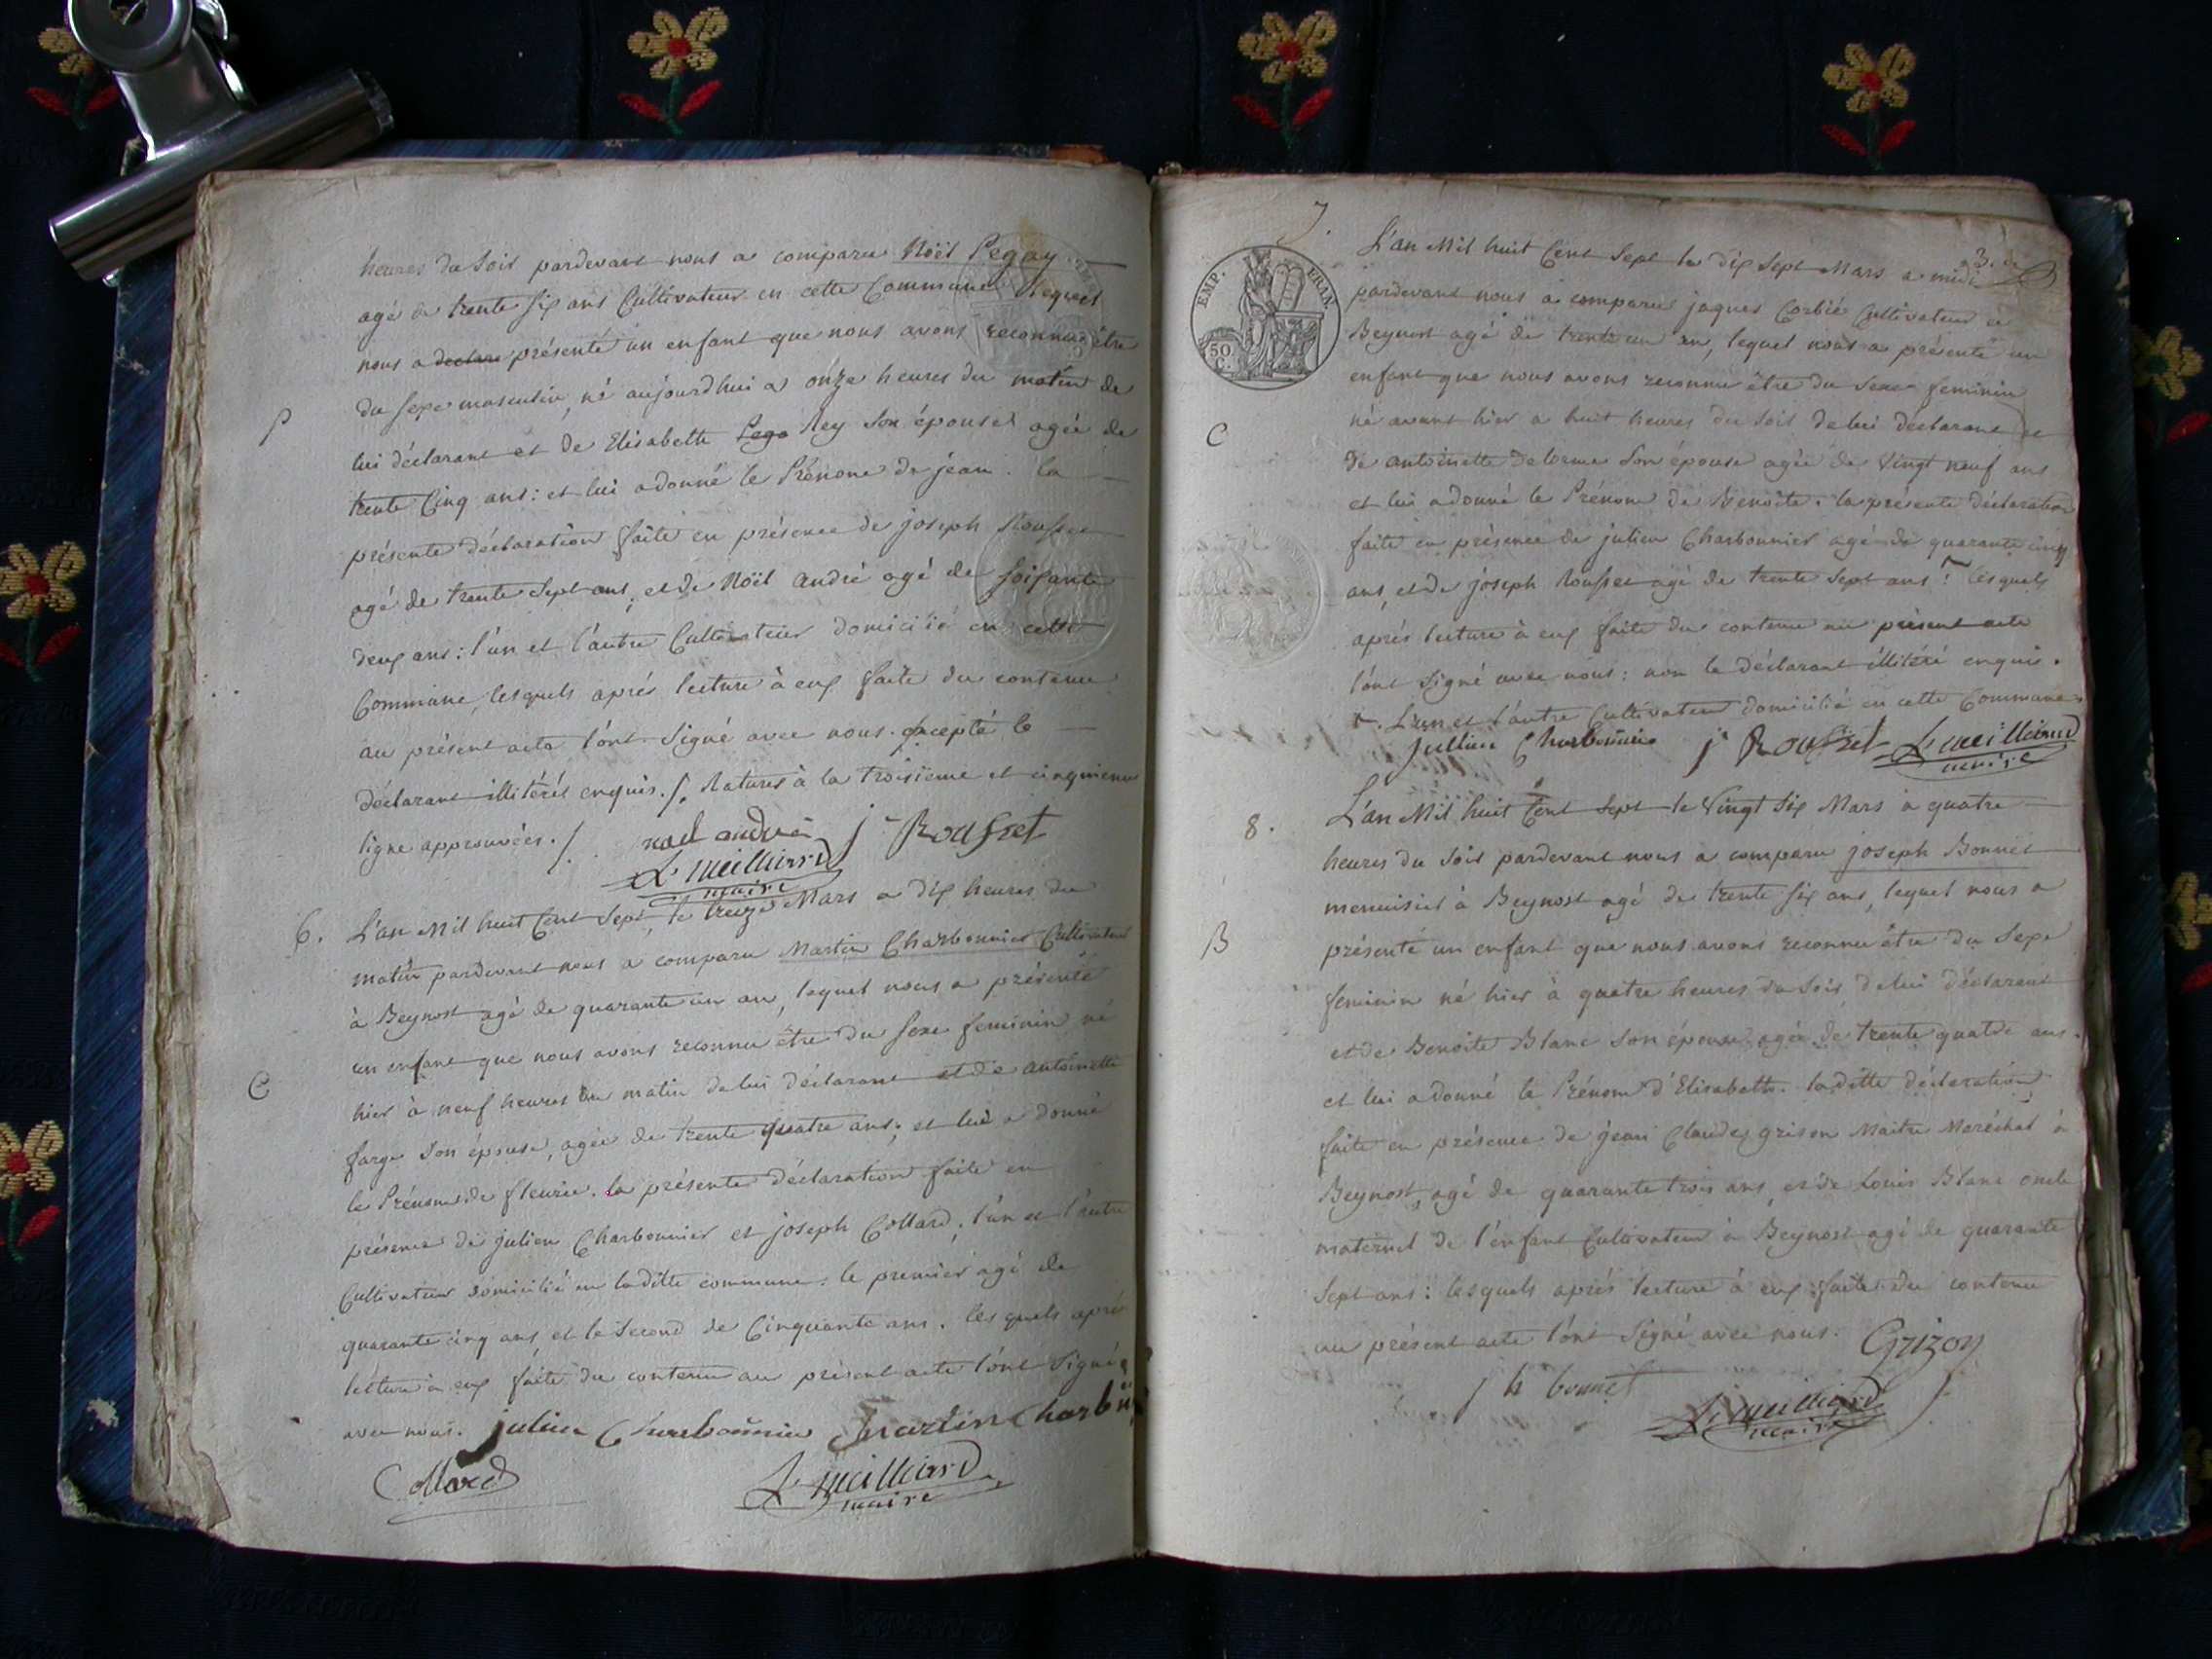 heures du soir pardevant nous a comparu Noël Pegay
agé de trente six ans Cultivateur en cette Commune lequel
nous a declare présenté un enfant que nous avons reconnu être
P
du sexe masculin, né aujourdhui a onze heures du matin de
lui déclarant et de Elisabeth Rey son épouse agée de
trente cinq ans: et lui a donné le Prénom de jean. la
présente déclaration faite en présence de joseph Rousset
agé de trente sept ans, et de Noël andré agé de soixante
deux ans: l'un et l'autre Cultivateur domicilié en cette
Commune, lesquels aprés lecture à eux faite du contenu
au présent acte l'ont signé avec nous. excepté le
déclarant illitéré enquis./. Ratures à la troisieme et cinquieme
ligne approuvées./.
noel andré j Rousset
L. meilliard
maire
6. L'an Mil huit Cent Sept, le treize Mars a dix heures du
matin pardevant nous a comparu Martin Charbonnier Cultivateur
à Beynost agé de quarante un an, lequel nous a présenté
un enfant que nous avons reconnu être du sexe feminin né
C
hier à neuf heures du matin de lui déclarant et de antoinette
farge son épouse, agée de trente quatre ans; et lui a donné
le Prénom de fleurie. la présente déclaration faite en
présence de julien Charbonnier et joseph Collard, l'un et l'autre
Cultivateur domicilié en laditte commune. le premier agé de
quarante cinq ans et le second de Cinquante ans. lesquels aprés
lecture à eux faite du contenu au présent acte l'ont signé
avec nous. julien Charbonnier martin Charbon
Collard
L. meilliard
maire
7. L'an Mil huit Cent Sept le dix sept Mars a midi
3.
EMP. FRAN.
50 C.
pardevant nous a comparu jaques Corbié Cultivateur à
Beynost agé de trente un an, lequel nous a présenté un
enfant que nous avons reconnu être du sexe feminin
né avant hier a huit heures du soir de lui déclarant et
C
de antoinette delorme son épouse agée de vingt neuf ans
et lui a donné le Prénom de Benoite. la presente déclaration
faite en présence de julien Charbonnier agé de quarante cinq
ans, et de joseph Rousset agé de trente sept ans: lesquels
aprés lecture à eux faite du contenu au présent acte
l'ont signé avec nous: non le déclarant illitéré enquis.
L'un et l'autre Cultivateur domicilié en cette Commune
jullien Charbonnier j Rousset L. meilliard
maire
8. L'an Mil huit Cent Sept le Vingt six Mars a quatre
heures du soir pardevant nous a comparu joseph Bonnet
menuisier à Beynost agé de trente six ans, lequel nous a
B
présenté un enfant que nous avons reconnu être du sexe
feminin né hier à quatre heures du soir, de lui déclarant
et de Benoite Blanc son épouse agée de trente quatre ans.
et lui a donné le Prénom d'Elisabeth. laditte déclaration
faite en présence de jean Claude grison Maitre Maréchal à
Beynost, agé de quarante trois ans, et de Louis Blanc oncle
maternel de l'enfant Cultivateur à Beynost agé de quarante
sept ans: lesquels aprés lecture à eux faite du contenu
au présent acte l'ont signé avec nous.
Grizon
j h bonnet
L. meilliard
maire